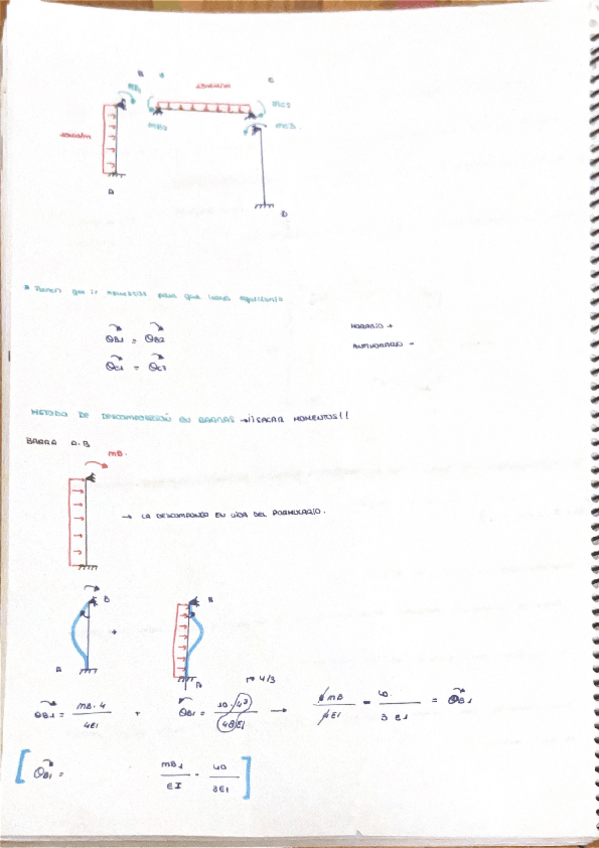 B
C
MB1
10KN/m
MC2
MB2
MC3.
10KN/m
A
D
* Tienen que ir opuestos para que haya equilibrio
θB1 = θB2
HORARIO +
ANTIHORARIO -
θC2 = θC3
METODO DE DESCOMPOSICIÓN EN BARRAS → ¡¡SACAR MOMENTOS!!
BARRA A-B
MB.
→ LA DESCOMPONGO EN VIGA DEL FORMULARIO.
B
B
+
A
A
→ 4/3
θB1 = MB·4 / 4EI + θB1 = 10·4³ / 48EI → 4MB / 4EI - 40 / 3EI = θB1
[ θB1 = MB1 / EI - 40 / 3EI ]